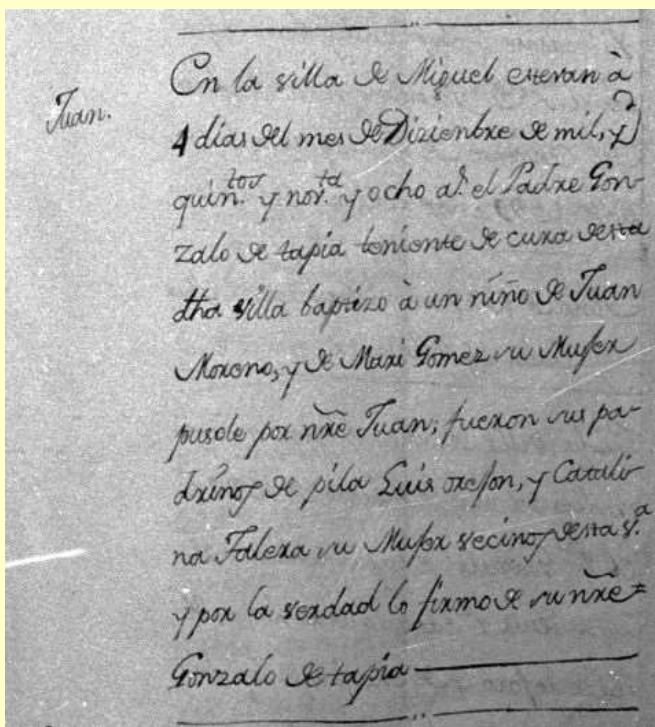 Juan.
En la villa de Miguel estevan à
4 dias del mes de Dizienbre de mil, y
quin.tos y nov.ta y ocho a.s el Padre Gon-
zalo de tapia teniente de cura desta
dha villa baptizo à un niño de Juan
Moreno, y de Mari Gomez su Muger
pusole por nre Juan; fueron sus pa-
drinos de pila Luis orejon, y Catali-
na su Muger vecinos desta v.a
y por la verdad lo firmo de su nre=
Gonzalo de tapia